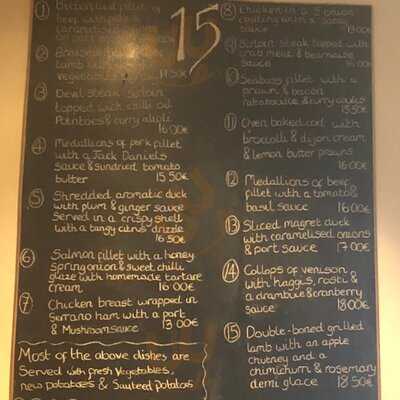 15
① Butterflied fillet of
beef with pate &
caramelised
② 
vegetables 17.50€
③ Devil steak sirloin
topped with chilli oil
Potatoes & curry
16.00€
④ Medallions of pork fillet
with a Jack Daniels
sauce & sundried tomato
butter 15.50€
⑤ Shredded aromatic duck
with plum & ginger sauce
Served in a crispy shell
with a tangy citrus drizzle
16.50€
⑥ Salmon fillet with a honey
Spring onion & sweet chilli
glaze with homemade tartare
cream 16.00€
⑦ Chicken breast wrapped in
Serrano ham with a port
& Mushroom sauce 13.00€
Most of the above dishes are
Served with fresh Vegetables,
new potatoes & Sauteed potatoes
⑧ Chicken in a
sauce 13.00€
⑨ Sirloin steak topped with
crab meat & bearnaise
Sauce 16.00€
⑩ Seabass fillet with a
prawn & bacon
ratatouille & curry
15.50€
⑪ Oven baked cod with
broccoli & dijon cream
& lemon butter prawns
16.00€
⑫ Medallions of beef
fillet with a tomato &
basil sauce 16.00€
⑬ Sliced magret duck
with caramelised onions
& port sauce 17.00€
⑭ Collops of venison
with haggis, rosti &
a drambuie & cranberry
sauce 18.00€
⑮ Double-boned grilled
lamb with an apple
chutney and a
chimichurri & rosemary
demi glace 18.50€